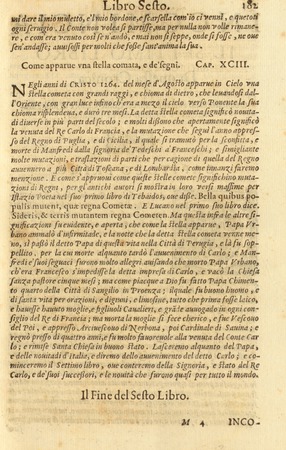 Libro Sesto. 182
ui dare il mio muletto, e'l mio bordone, e scarsella com'io ci venni, e quetoti
ogni seruigio. Il Conte non volea si partisse, ma per nulla non volle rimane-
re, e com'era venuto così se n'andò, e mai non si seppe, onde si fosse, ne oue
sen'andasse; auuisossi per molti che fosse sant'anima la sua.
Come apparue vna stella comata, e de'segni. CAP. XCIII.
NEgli anni di CRISTO 1264. del mese d'Agosto apparue in Cielo vna
stella cometa con grandi raggi, e chioma di dietro, che leuandosi dal-
l'Oriente, con gran luce infino ch'era a mezo il cielo verso Ponente la sua
chioma risplendeua, e durò tre mesi. La detta stella cometa significò nouità
di diuerse in più parti del secolo; e molti dissono che apertamente significò la
venuta del Re Carlo di Francia, e la mutatione che seguì l'anno appres-
so del Regno di Puglia, e di Cicilia, il quale si tramutò per la sconfitta, e
morte di Manfredi dalla Signoria de' Tedeschi a' Franceschi; e simigliante
molte mutazioni, e traslazioni di parti che per cagione di quella del Regno
auuennero a più Città di Toscana, e di Lombardia, come innanzi faremo
menzione. E come s'appruoui come queste stelle comete significhino mutazio-
ni di Regni, per gli antichi autori si mostra in loro versi massime per
Istazio Poeta nel suo primo libro di Tebaidos, oue disse. Bella quibus po-
pulis mutent, quæ regna Cometæ. E Lucano nel suo primo libro dice.
Sideris, & terris mutantem regna Cometen. Ma questa infra le altre signi-
ficazioni fu euidente, e aperta, che come la stella apparue, Papa Vrba-
no ammalò d'infirmitade, e la notte che la detta stella cometa venne me-
no, sì passò il detto Papa di questa vita nella Città di Perugia, e là fu sop-
pellito. per la cui morte alquanto tardò l'auuenimento di Carlo; e Man-
fredi e suoi seguaci furono molto allegri auuisando che morto Papa Vrbano,
ch'era Francesco s'impedisse la detta impresa di Carlo, e vacò la Chiesa
sanza pastore cinque mesi; ma come piacque a Dio fu fatto Papa Chimen-
to quarto della Città di Sangilio in Prouenza; il quale fu buono huomo, e
di santa vita per orazioni, e digiuni, e limosine, tutto che prima fosse laico,
e hauesse hauuto moglie, e figliuoli Caualieri, e grāde auuogado in ogni consi-
glio del Re di Francia; ma morta la moglie si fece cherico, e fue Vescouo
del Poi, e appresso Arciuescouo di Nerbona, poi Cardinale di Sauina; e
regnò presso di quattro anni, e fu molto fauoreuole alla venuta del Conte Car-
lo; e rimise Santa Chiesa in buono stato. Lasceremo alquanto del Papa,
e delle nouitadi d'Italia, e diremo dello auuenimento del detto Carlo; e co-
minceremo il Settimo libro, oue conterremo della Signoria, e stato del Re
Carlo, e de'suoi successori, e le nouità che furono quasi per tutto il mondo.
Il Fine del Sesto Libro.
M 4 INCO-